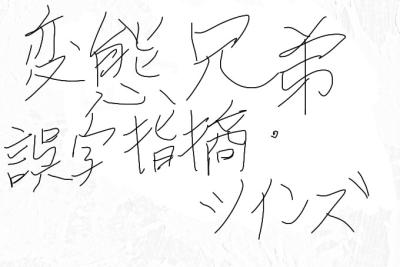 変態兄弟
誤字指摘。
ツインズ